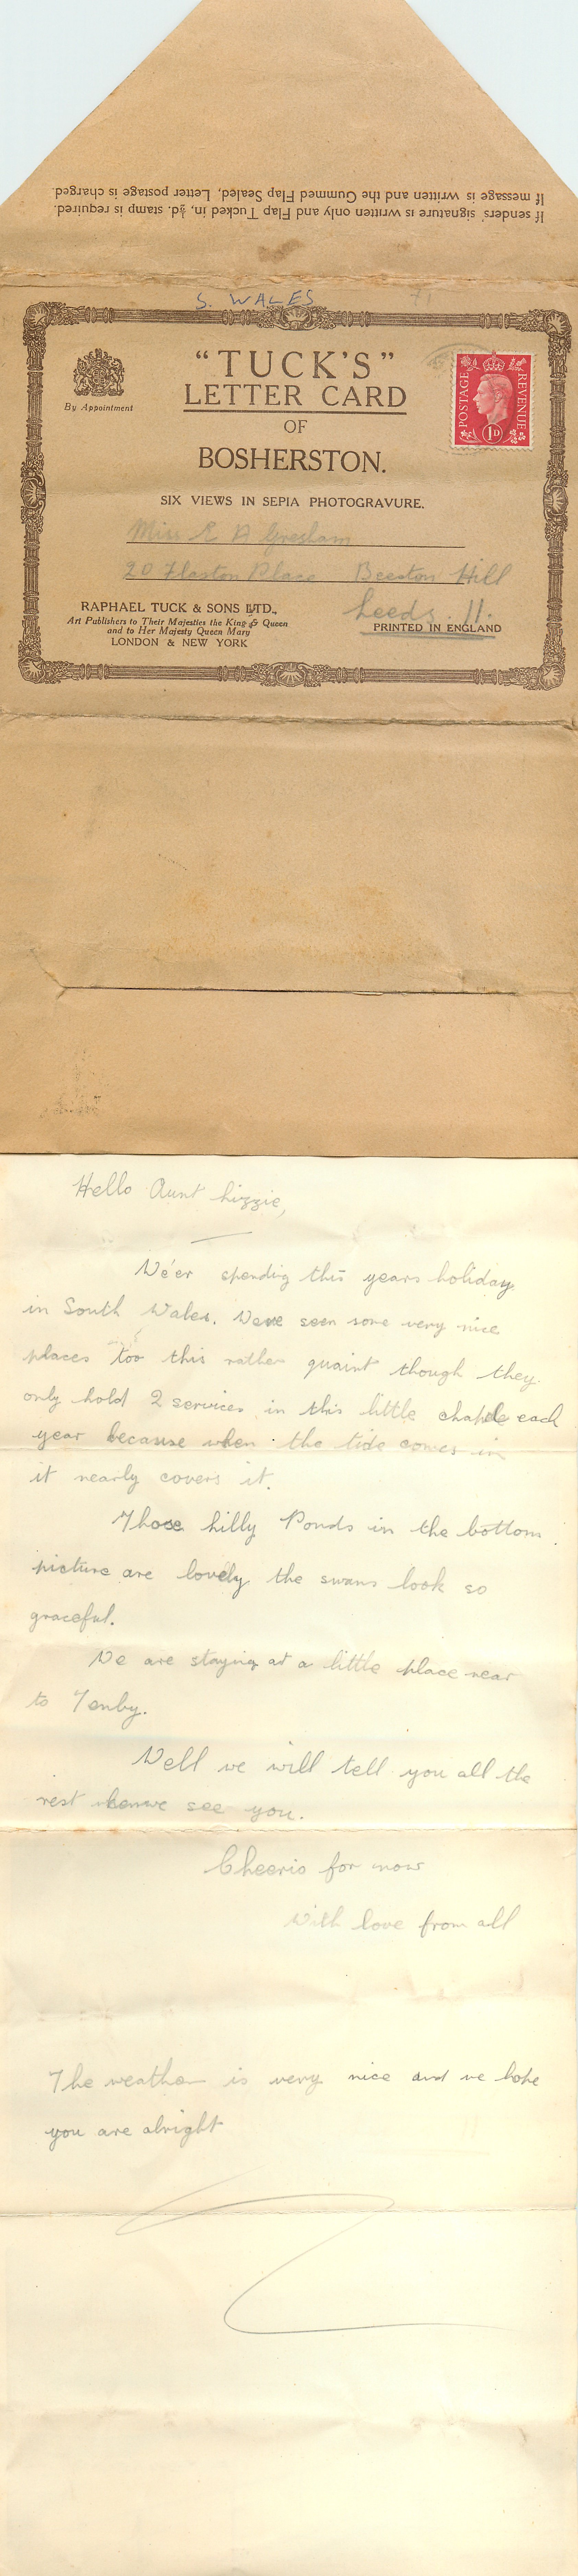 If senders' signature is written only and Flap Tucked in, ½d. stamp is required.
If message is written and the Gummed Flap Sealed, Letter postage is charged.
S. WALES
71
"TUCK'S"
LETTER CARD
OF
BOSHERSTON.
By Appointment
POSTAGE REVENUE
1D
SIX VIEWS IN SEPIA PHOTOGRAVURE.
Miss E A Gresham
20 Flaxton Place Beeston Hill
Leeds 11.
RAPHAEL TUCK & SONS LTD.,
Art Publishers to Their Majesties the King & Queen
and to Her Majesty Queen Mary
LONDON & NEW YORK
PRINTED IN ENGLAND
Hello Aunt Lizzie,
We'er spending this years holiday
in South Wales. Weve seen some very nice
places too this rather quaint though they
only hold 2 services in this little chaple each
year because when the tide comes in
it nearly covers it.
Those lilly Ponds in the bottom
picture are lovely the swans look so
graceful.
We are staying at a little place near
to Tenby.
Well we will tell you all the
rest we see you.
Cheerio for now
With love from all
The weather is very nice and we hope
you are alright